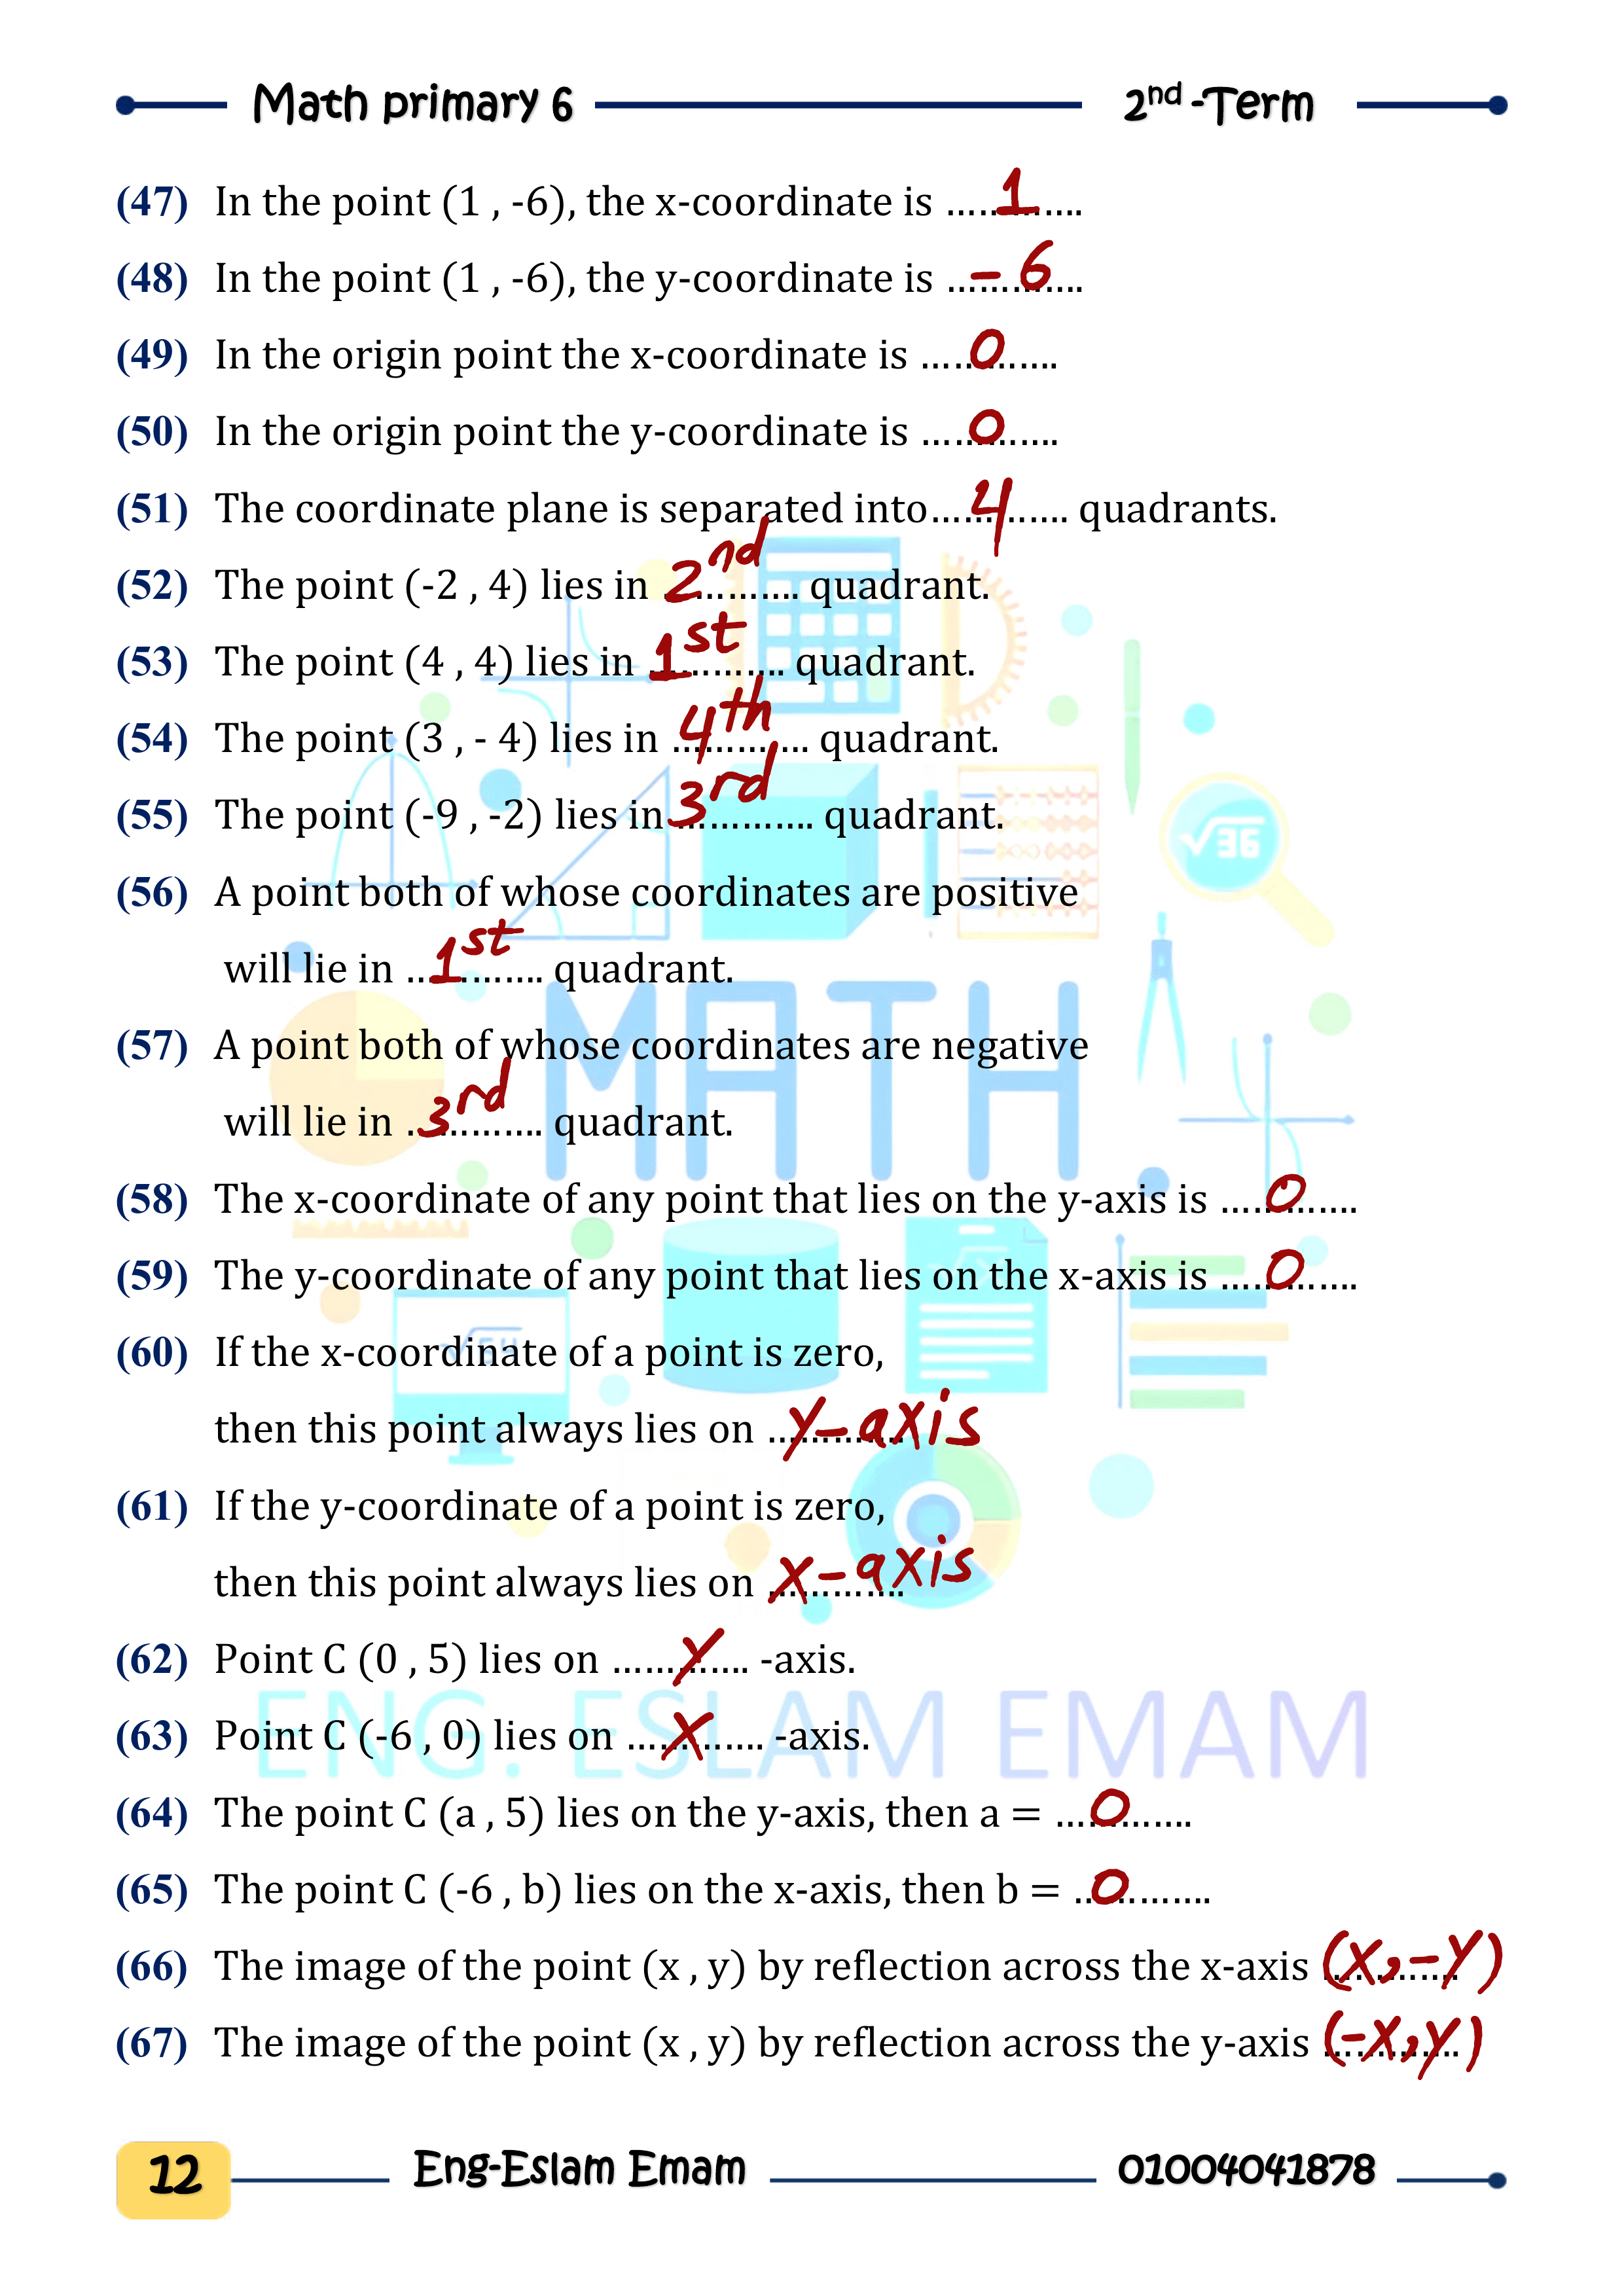 Math primary 6 2nd -Term
(47) In the point (1 , -6), the x-coordinate is ............. 1
(48) In the point (1 , -6), the y-coordinate is ............. - 6
(49) In the origin point the x-coordinate is ............. 0
(50) In the origin point the y-coordinate is ............. 0
(51) The coordinate plane is separated into............. 4 quadrants.
(52) The point (-2 , 4) lies in ............. 2nd quadrant.
(53) The point (4 , 4) lies in ............. 1st quadrant.
(54) The point (3 , - 4) lies in ............. 4th quadrant.
(55) The point (-9 , -2) lies in ............. 3rd quadrant.
(56) A point both of whose coordinates are positive
will lie in ............. 1st quadrant.
(57) A point both of whose coordinates are negative
will lie in ............. 3rd quadrant.
(58) The x-coordinate of any point that lies on the y-axis is ............. 0
(59) The y-coordinate of any point that lies on the x-axis is ............. 0
(60) If the x-coordinate of a point is zero,
then this point always lies on ............. y-axis
(61) If the y-coordinate of a point is zero,
then this point always lies on ............. x-axis
(62) Point C (0 , 5) lies on ............. y -axis.
(63) Point C (-6 , 0) lies on ............. x -axis.
(64) The point C (a , 5) lies on the y-axis, then a = ............. 0
(65) The point C (-6 , b) lies on the x-axis, then b = ............. 0
(66) The image of the point (x , y) by reflection across the x-axis ............. (x, -y)
(67) The image of the point (x , y) by reflection across the y-axis ............. (-x, y)
√36
MATH
√54
ENG. ESLAM EMAM
12 Eng-Eslam Emam 01004041878